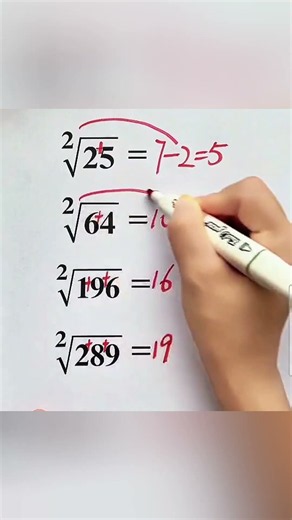 ²√25 = 7-2=5
²√64 = 10
²√196 = 16
²√289 = 19